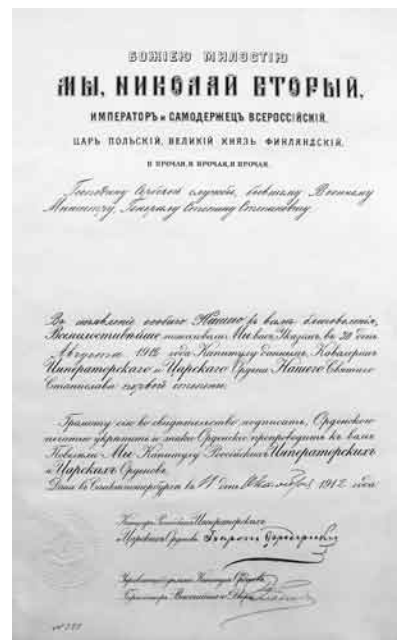 БОЖІЕЮ МИЛОСТІЮ
МЫ, НИКОЛАЙ ВТОРЫЙ,
ИМПЕРАТОРЪ и САМОДЕРЖЕЦЪ ВСЕРОССІЙСКІЙ,
ЦАРЬ ПОЛЬСКІЙ, ВЕЛИКІЙ КНЯЗЬ ФИНЛЯНДСКІЙ,
И ПРОЧАЯ, И ПРОЧАЯ, И ПРОЧАЯ.
Господину Сербской службы, бывшему Военному
Министру, Генералу Степановичу
Въ изъявленіе особаго Нашего къ вамъ благоволенія,
Всемилостивѣйше пожаловали Мы васъ, Указомъ въ день
Августа 1912 года Капитулу даннымъ, Кавалеромъ
Императорскаго и Царскаго Ордена Нашего Святаго
Станислава первой степени.
Грамоту сію во свидѣтельство подписать, Орденскою
печатью укрѣпить и знаки Орденскіе препроводить къ вамъ
Повелѣли Мы Капитулу Россійскихъ Императорскихъ
и Царскихъ Орденовъ.
Дана въ Санктпетербургѣ въ день 1912 года
Канцлеръ Россійскихъ Императорскихъ
и Царскихъ Орденовъ
Управляющій дѣлами Капитула Орденовъ,